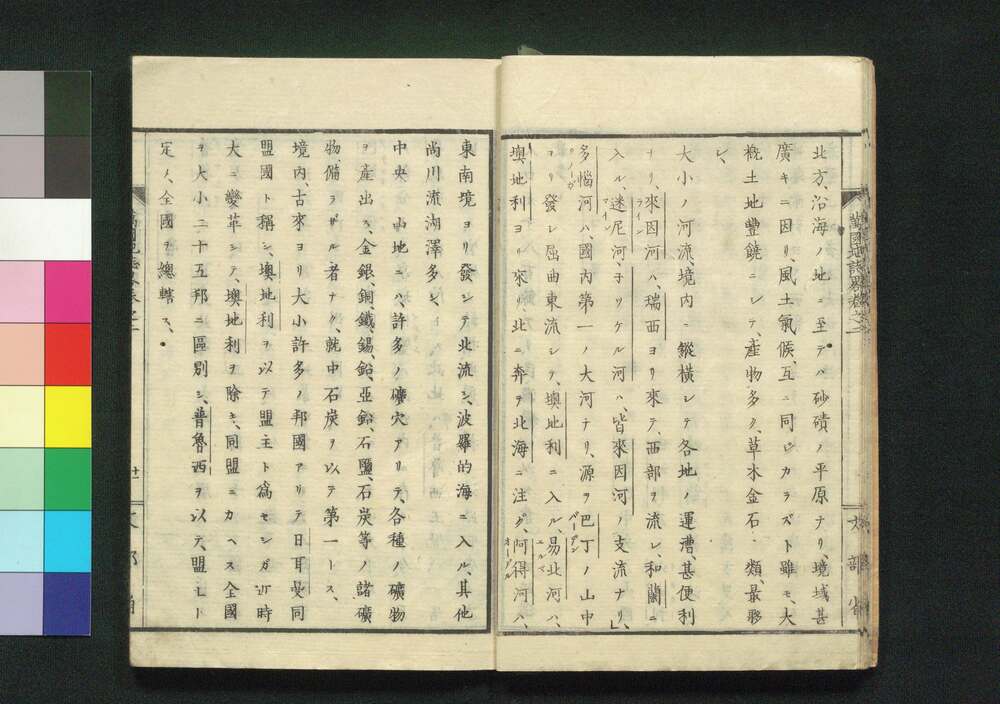 北方、沿海ノ地ニ至テハ砂磧ノ平原ナリ、境域甚
廣キニ因リ、風土氣候、互ニ同ジカラズト雖モ、大
概土地豐饒ニシテ、産物多ク、草木金石ノ類、最夥
シ、
大小ノ河流、境内ニ縱横シテ各地ノ運漕甚便利
ナリ、來因河ハ、瑞西ヨリ來テ、西部ヲ流レ、和蘭ニ
ライン
入ル、迷尼河、子ッケル河ハ、皆來因河ノ支流ナリ、
マイン
多惱河ハ國内第一ノ大河ナリ、源ヲ巴丁ノ山中
バーデン
ヨリ發シ屈曲東流シテ、墺地利ニ入ル、易北河ハ、
エルベ
墺地利ヨリ來リ、北ニ奔テ北海ニ注グ、阿得河ハ、
オーデル
萬國地誌畧卷之二
文部省
東南境ヨリ發シテ北流シ、波羅的海ニ入ル、其他
尚川流湖澤多シ、
中央ノ山地ニハ、許多ノ礦穴アリテ、各種ノ礦物
ヲ産出ス、金銀、銅、鐵、錫、鉛、亞鉛、石鹽、石炭等ノ諸礦
物、備ラザル者ナク、就中石炭ヲ以テ第一トス、
境内、古來ヨリ大小許多ノ邦國アリテ日耳曼同
盟國ト稱シ、墺地利ヲ以テ盟主ト爲セシガ近時
大ニ變革シテ墺地利ヲ除キ、同盟ニカヘス全國
ヲ大小二十五邦ニ區別シ、普魯西ヲ以テ、盟主ト
定メ、全國ヲ總轄ス、